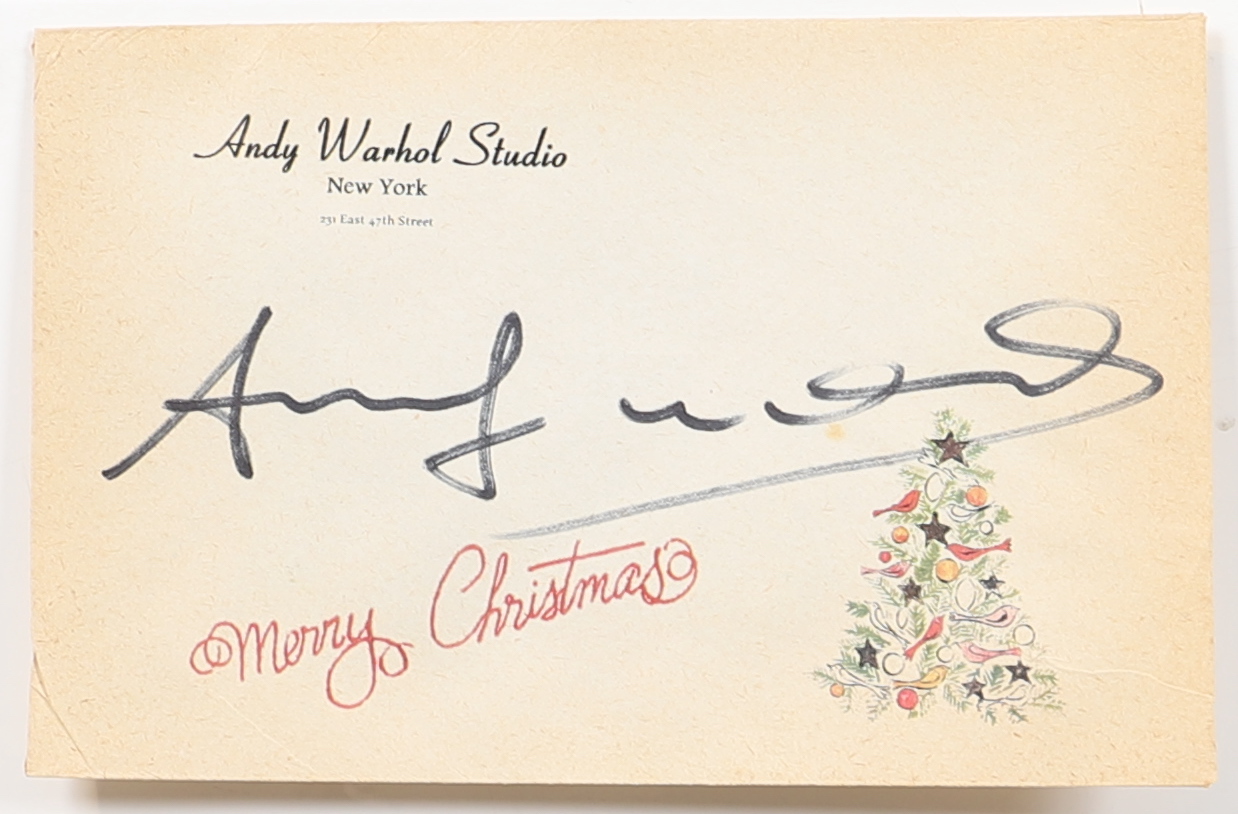 Andy Warhol Studio
New York
231 East 47th Street
Andy Warhol
Merry Christmas